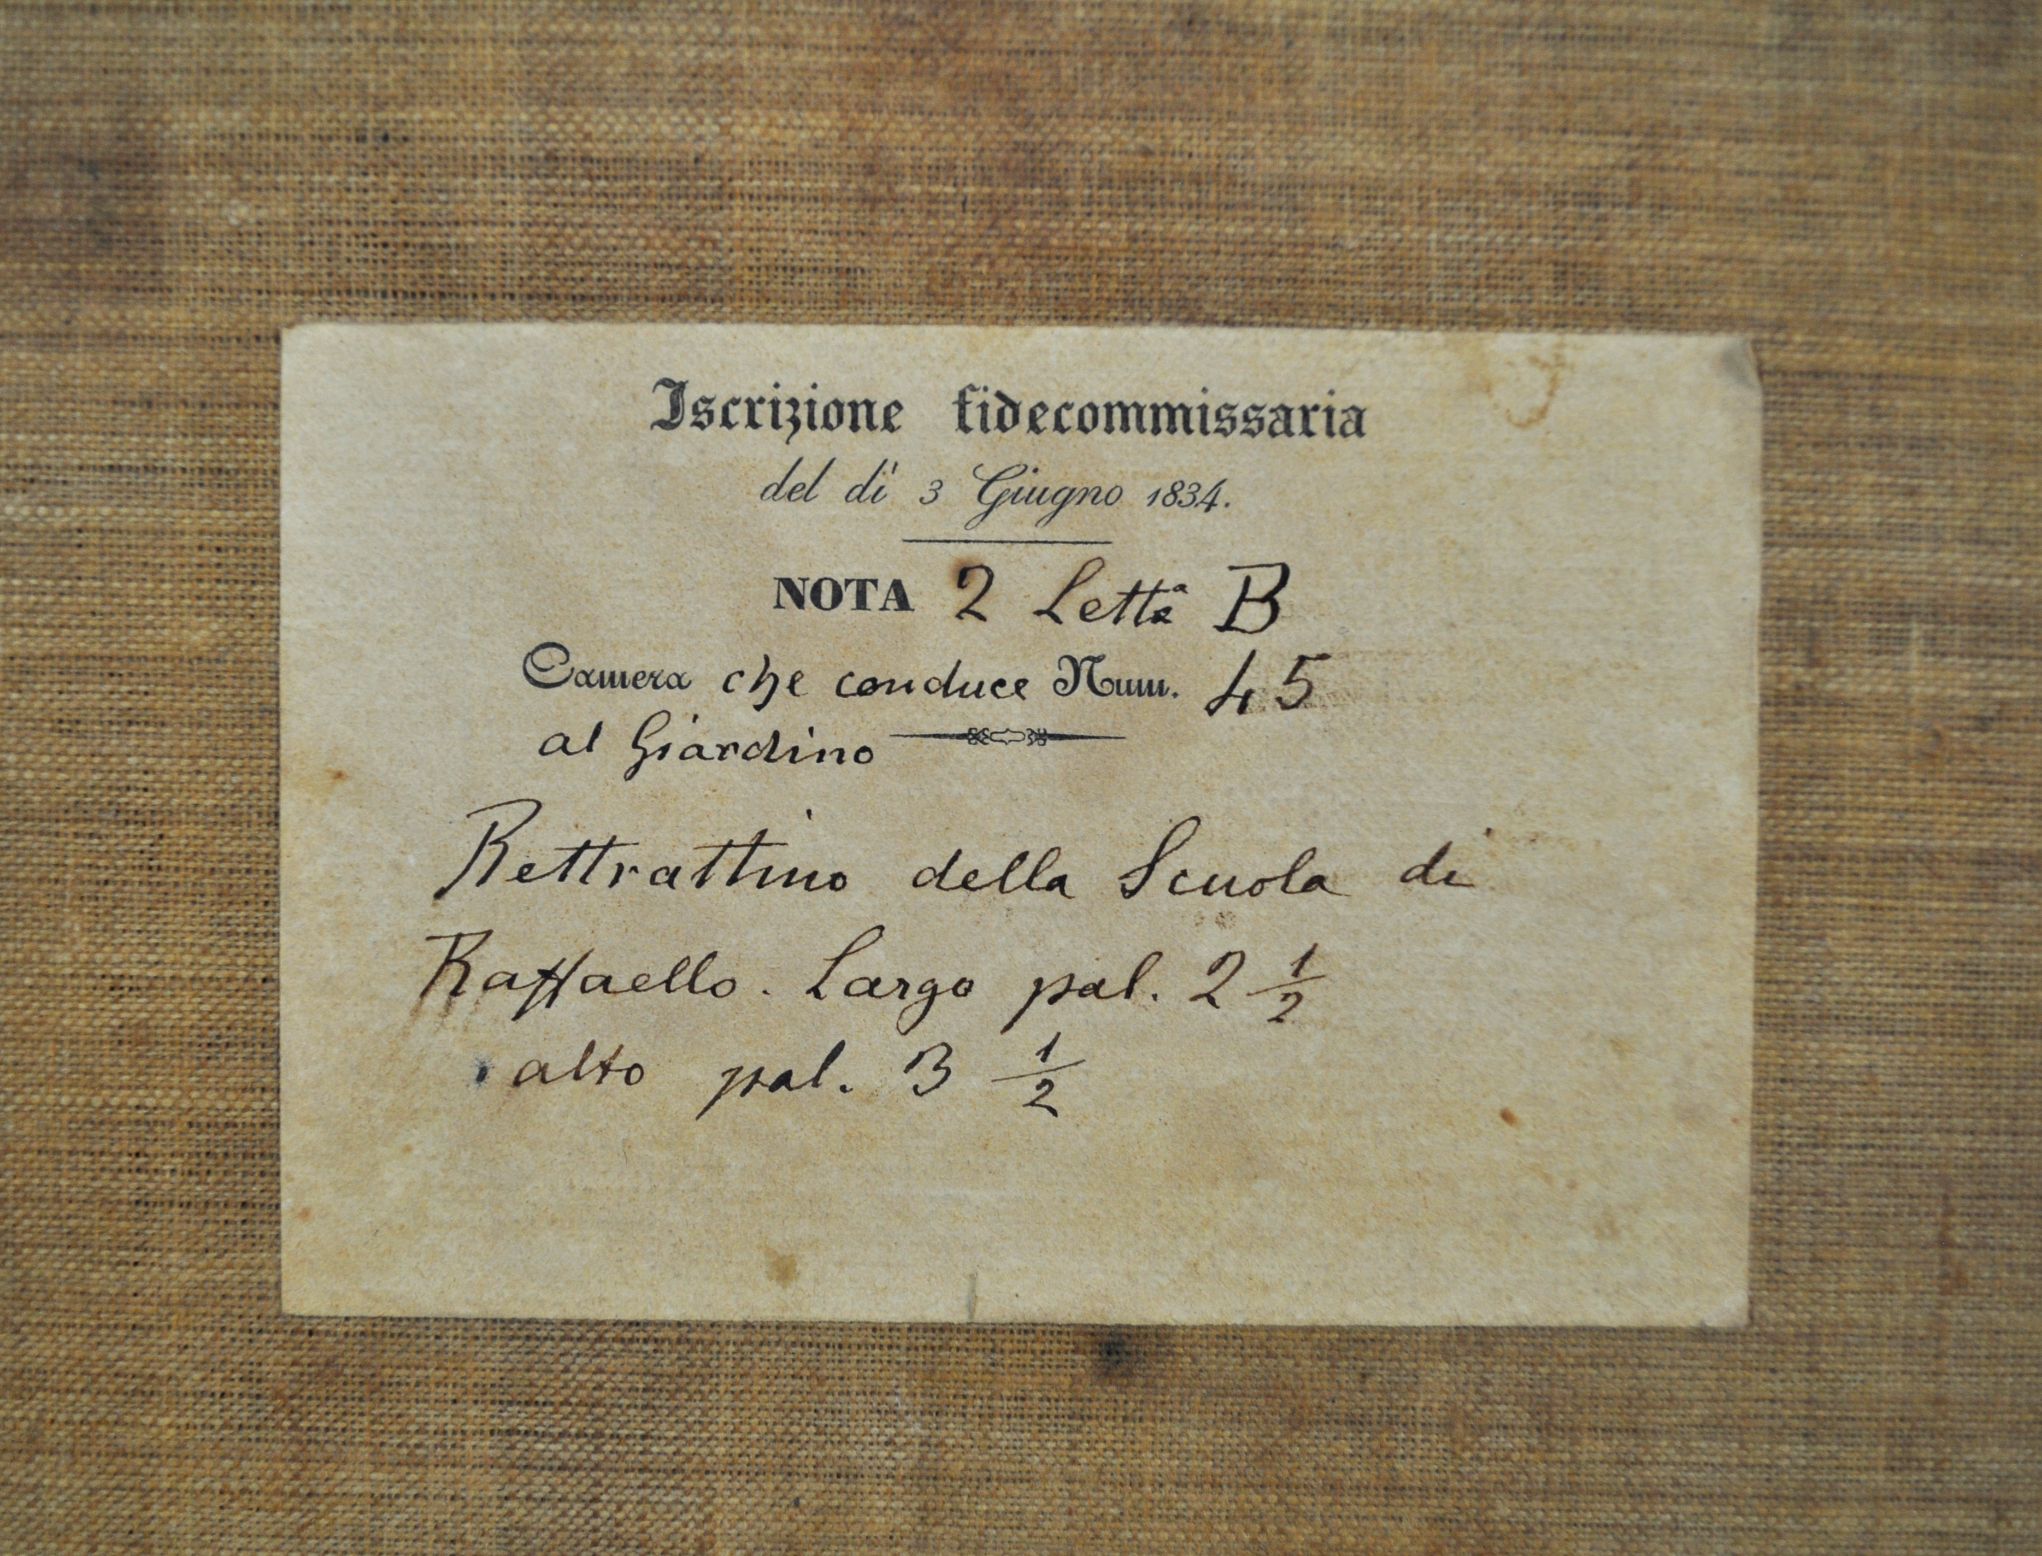 Iscrizione fidecommissaria
del dì 3 Giugno 1834.
NOTA 2 Lettª B
Camera che conduce Num. 45
al Giardino
Rettrattino della Scuola di
Raffaello. Largo pal. 2 1/2
alto pal. 3 1/2